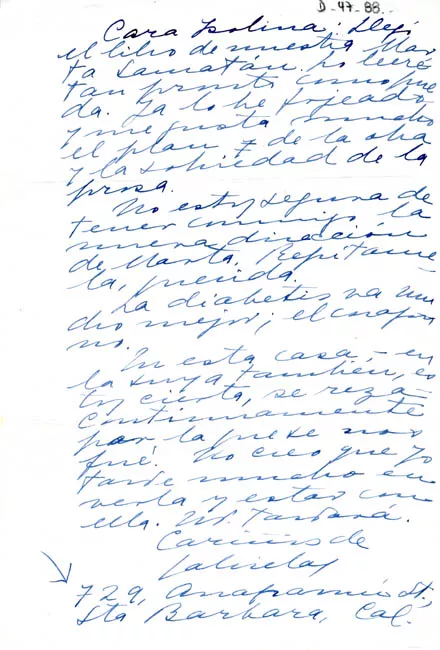 D-47-88-
Cara Isolina: Llegó
el libro de nuestra Mar
ta Samatán. Lo leeré
tan pronto como pue
da. Ya lo he hojeado,
y me gusta mucho
el plan de la obra
y la sobriedad de la
prosa.
No estoy segura de
tener conmigo la
nueva dirección
de Marta. Repítame
la, querida.
La diabetes va mu
cho mejor; el corazón
no.
En esta casa, - en
la suya también, es
toy cierta, se reza
continuamente
por la que se nos
fué. No creo que yo
tarde mucho en
verla y estar con
ella. Ud. tardará.
Cariños de
Gabriela
729, Anapamu St,
Sta Barbara, Cal.